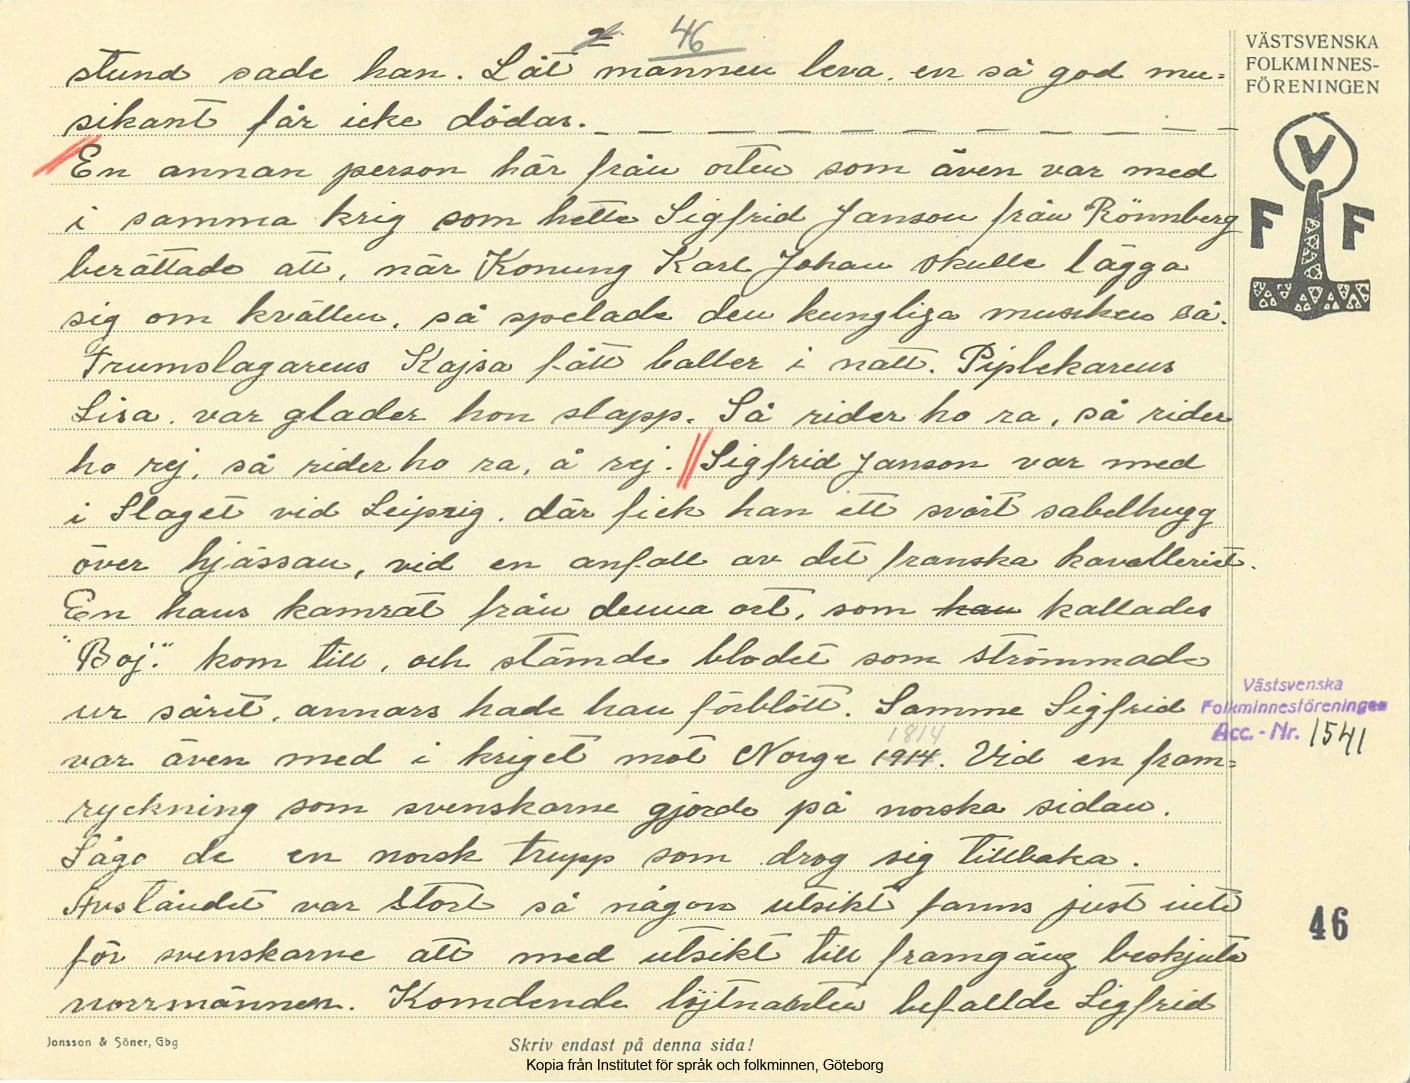 46
stund sade han. Låt mannen leva. en så god mu=
sikant får icke dödas. _ _ _ _ _ _ _ _ _ _ _ _
En annan person här från orten som även var med
i samma krig som hette Sigfrid Janson från Rönnberg
berättade att, när Konung Karl Johan skulle lägga
sig om kvällen, så spelade den kungliga musiken så.
Trumslagarens Kajsa fått balter i natt. Piplekarens
Lisa. var glader hon slapp. Så rider ho ra, så rider
ho rej, så rider ho ra, å rej. Sigfrid Janson var med
i Slaget vid Leipzig. där fick han ett svårt sabelhugg
över hjässan, vid en anfall av det franska kavalleriet.
En hans kamrat från denna ort, som han kallades
"Boj." kom till, och stämde blodet som strömmade
ur såret, annars hade han förblött. Samme Sigfrid
1814
var även med i kriget mot Norge 1914. Vid en fram=
ryckning som svenskarne gjorde på norska sidan.
Sågo de en norsk trupp som drog sig tillbaka.
Avståndet var Stort så någon utsikt fanns just inte
för svenskarne att med utsikt till framgång beskjuta
norrmännen. Komdende löjtnanten befallde Sigfrid
VÄSTSVENSKA
FOLKMINNES-
FÖRENINGEN
V
F F
Västsvenska
Folkminnesföreningen
Acc.-Nr. 1541
46
Jonsson & Söner, Gbg
Skriv endast på denna sida!
Kopia från Institutet för språk och folkminnen, Göteborg